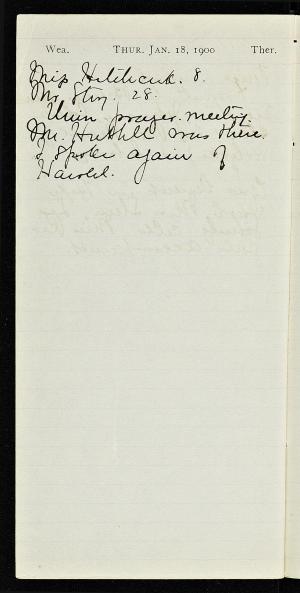 Wea. THUR. JAN. 18, 1900 Ther.
Miss Hitchcock. 8.
Mr. 28.
Union prayer-meeting.
Mr. Hubbell was there.
& spoke again of
Harold.